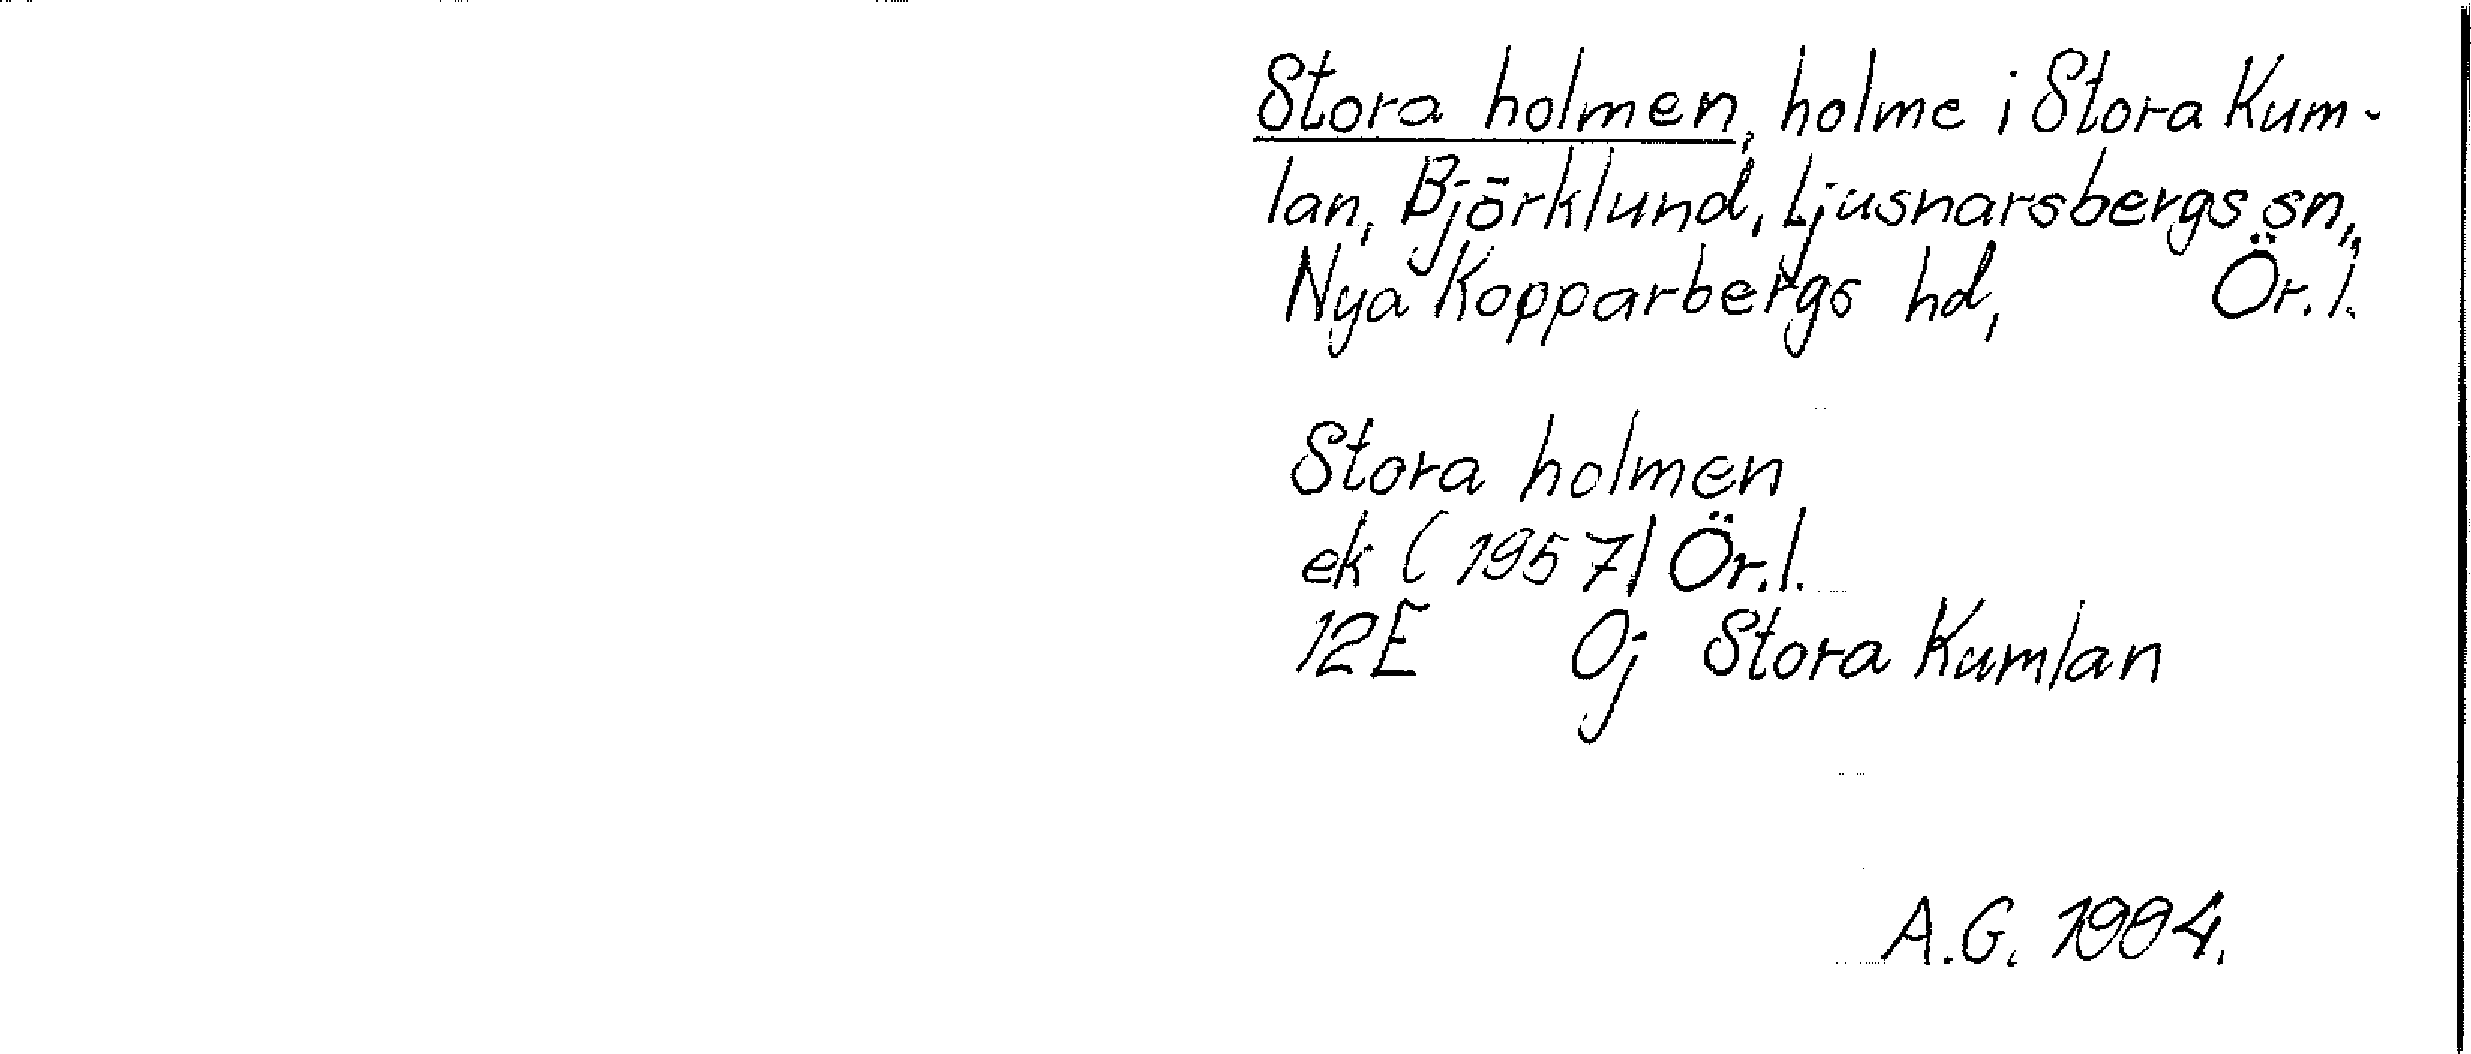 Stora holmen, holme i Stora Kum-
lan, Björklund, Ljusnarsbergs sn,
Nya Kopparbergs hd, Ör. l.
Stora holmen
ek (1957) Ör. l.
12E 0j Stora Kumlan
A.G. 1994.